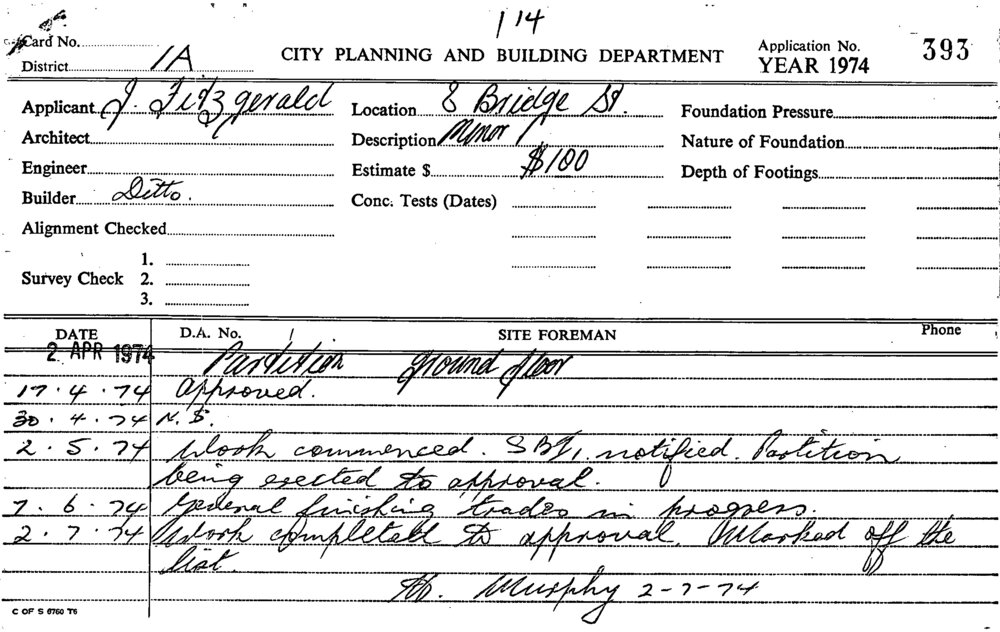 114
Card No.
District 1A
CITY PLANNING AND BUILDING DEPARTMENT
Application No. 393
YEAR 1974
Applicant J. Fitzgerald
Location 8 Bridge St.
Foundation Pressure
Architect
Description Minor
Nature of Foundation
Engineer
Estimate $ $100
Depth of Footings
Builder Ditto.
Conc. Tests (Dates)
Alignment Checked
Survey Check 1.
2.
3.
DATE D.A. No. SITE FOREMAN Phone
2 APR 1974 Partition ground floor
17.4.74 Approved.
30.4.74 N.S.
2.5.74 Work commenced. notified. Partition
being erected to approval.
7.6.74 General finishing trades in progress.
2.7.74 Work completed to approval. Marked off the
list.
Murphy 2-7-74
C OF S 6760 T6